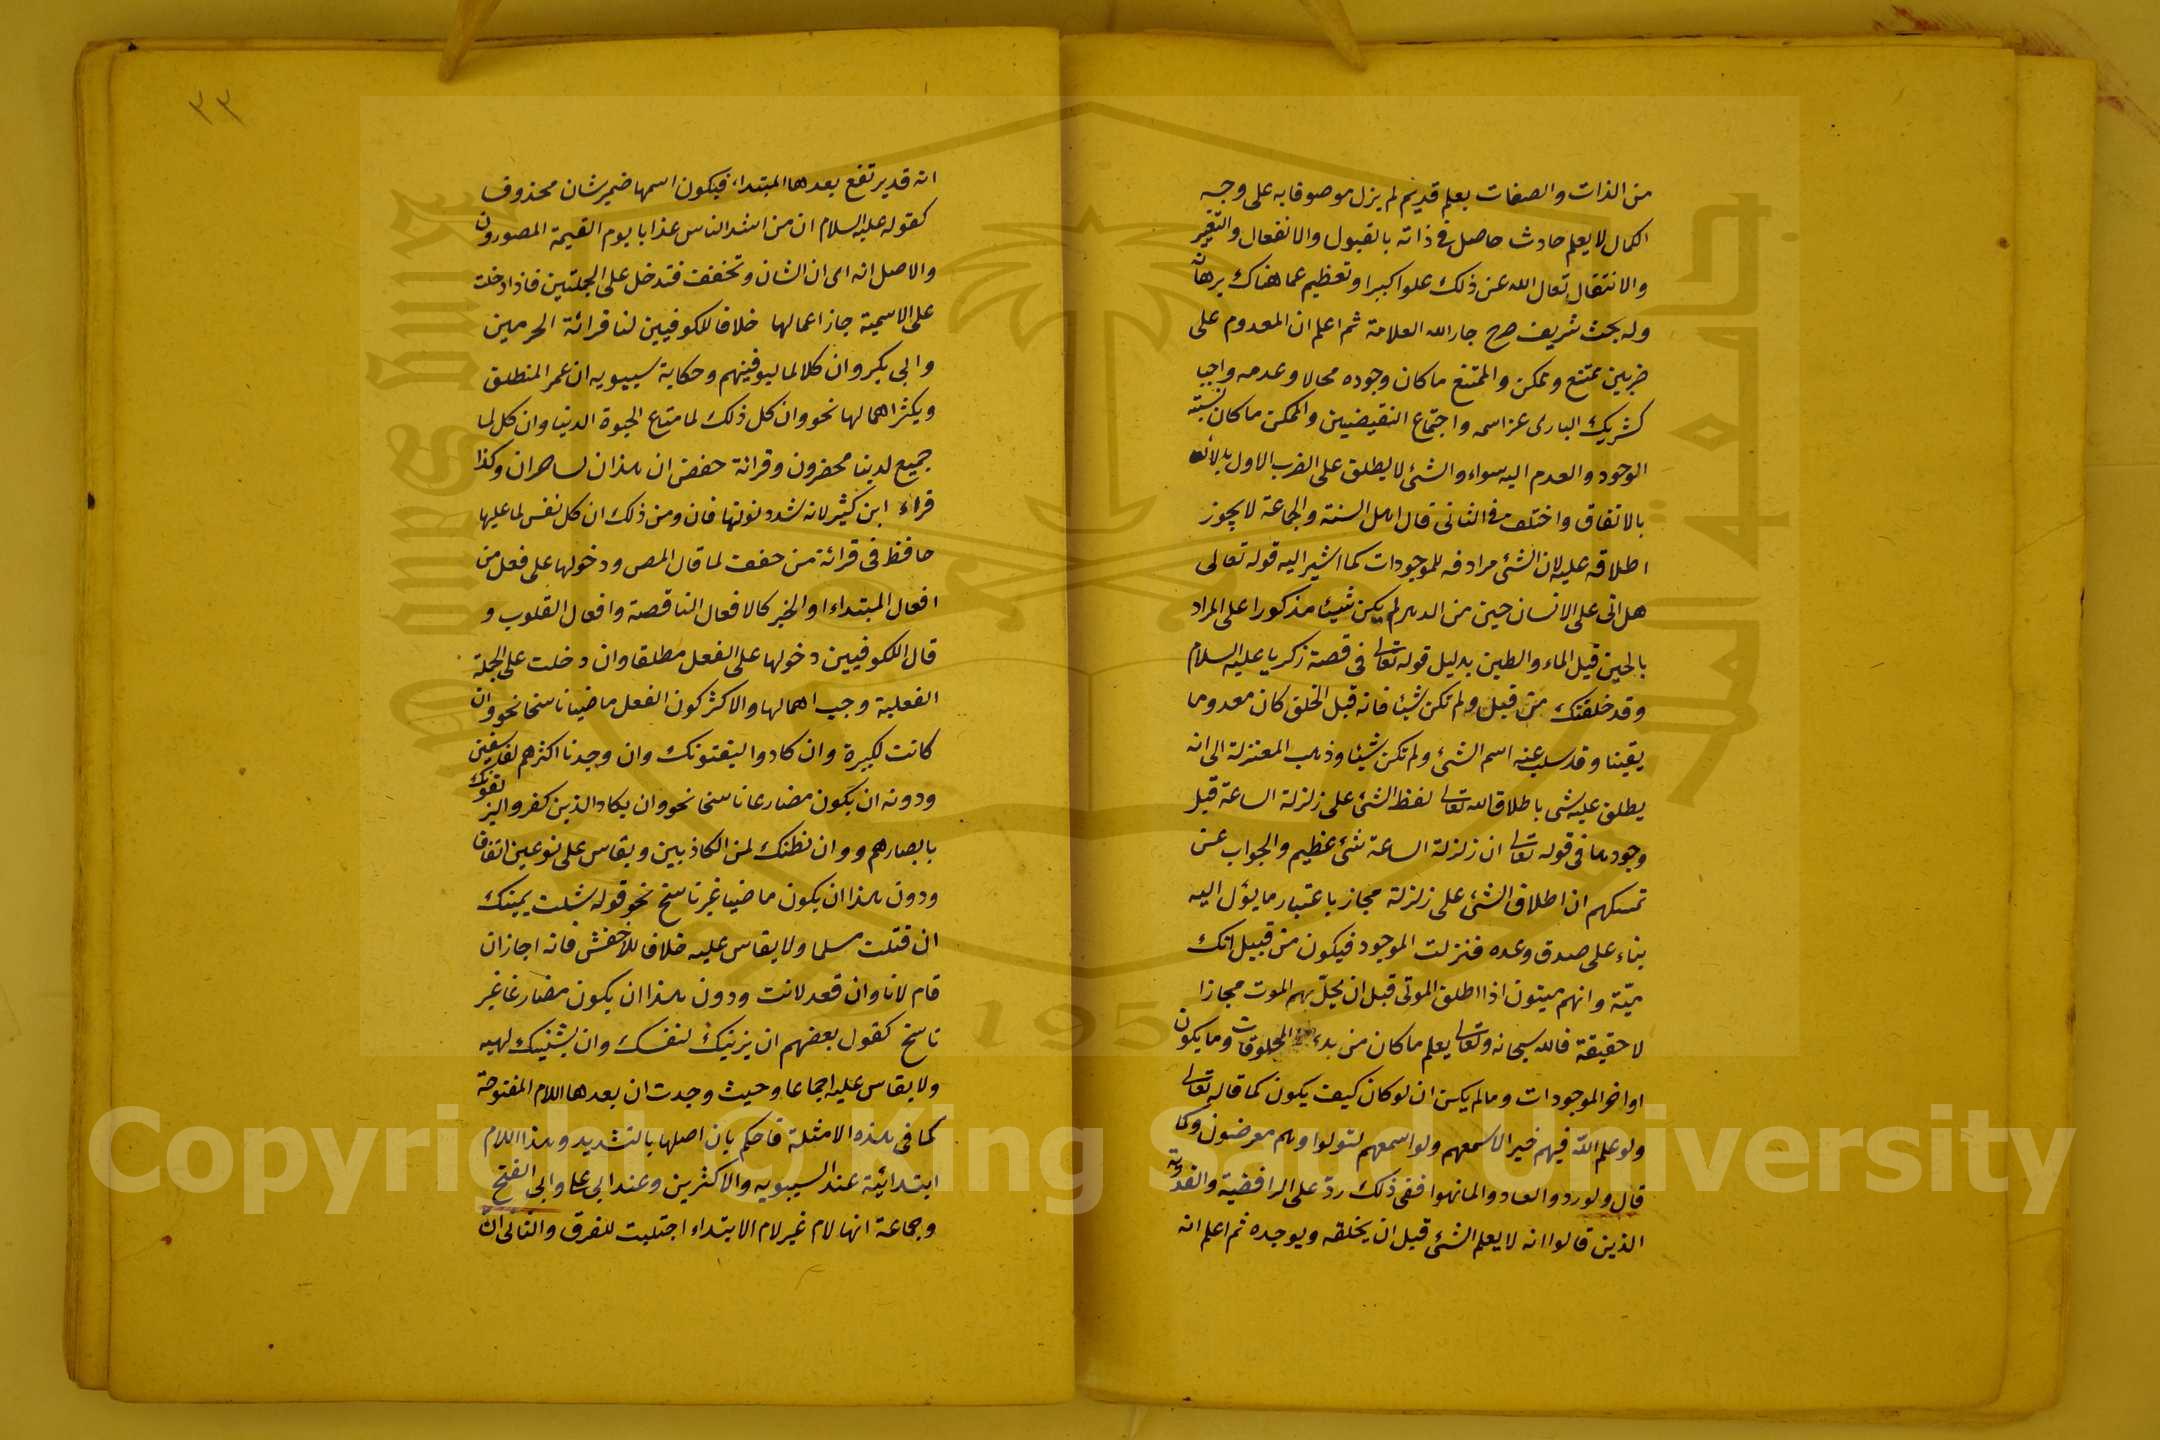 من الذات والصفات بعلم قديم لم يزل موصوفا به على وجه
الكمال لا يعلم حادث حاصل فى ذاته بالقبول والانفعال والتغير
والانتقال تعال الله عن ذلك علوا كبيرا وتعظيم عما هناك برهانه
وله بحث شريف صرح جار الله العلامة ثم اعلم ان المعدوم على
ضربين ممتنع وممكن والممتنع ما كان وجوده محالا وعدمه واجبا
كشريك البارى عز اسمه واجتماع النقيضين والممكن ما كان نسبته
الوجود والعدم اليه سواء والشئ لا يطلق على الضرب الاول
بالاتفاق واختلف فى الثانى قال اهل السنة والجماعة لا يجوز
اطلاقه عليه لان الشئ مرادفه للموجودات كما اشير اليه قوله تعالى
هل اتى على الانسان حين من الدهر لم يكن شيئا مذكورا على المراد
بالحين قبل الماء والطين بدليل قوله تعالى فى قصة زكريا عليه السلام
وقد خلقتك من قبل ولم تكن شيئا فانه قبل الخلق كان معدوما
يقينا وقد سلب عنه اسم الشئ ولم تكن شيئا وذهب المعتزلة الى انه
يطلق عليه شى باطلاق الله تعالى لفظ الشئ على زلزلة الساعة قبل
وجودها فى قوله تعالى ان زلزلة الساعة شئ عظيم والجواب عن
تمسكهم ان اطلاق الشئ على زلزلة مجاز باعتبار ما يؤل اليه
بناء على صدق وعده فنزلت الموجود فيكون من قبيل انك
ميّة وانهم ميتون اذا اطلق الموتى قبل ان يحلّ بهم الموت مجازا
لا حقيقة فالله سبحانه وتعالى يعلم ما كان من بدء المخلوقات وما يكون
اواخر الموجودات وما لم يكن ان لو كان كيف يكون كما قال تعالى
ولو علم الله فيهم خيرا لاسمعهم ولو اسمعهم لتولوا وهم معرضون وكما
قال ولو ردوا لعادوا لما نهوا ففى ذلك ردّ على الرافضية والقدرية
الذين قالوا انه لا يعلم الشئ قبل ان يخلقه ويوجده ثم اعلم انه
٣٣
انه قد يرتفع بعدها المبتداء فيكون اسمها ضمير شان محذوف
كقوله عليه السلام ان من اشد الناس عذابا يوم القيمة المصورون
والاصل انه اى ان الشان وتخفف فتدخل على الجملتين فاذا دخلت
على الاسمية جاز اعمالها خلافا للكوفيين لنا قرائة الحرمين
وابى بكر وان كلا لما ليوفينهم وحكاية سيبويه ان عمر المنطلق
ويكثر اهمالها نحو وان كل ذلك لما متاع الحيوة الدنيا وان كل لما
جميع لدينا محضرون وقرائة حفص ان هذان لساحران وكذا
قراء ابن كثير لانه شدد نونها فان ومن ذلك ان كل نفس لما عليها
حافظ فى قرائة من خفف لما قال المص ودخولها على فعل من
افعال المبتداء او الخبر كالافعال الناقصة وافعال القلوب و
قال الكوفيين دخولها على الفعل مطلقا وان دخلت على الجملة
الفعلية وجب اهمالها والاكثر كون الفعل ماضيا ناسخا نحو وان
كانت لكبيرة وان كادوا ليفتونك وان وجدنا اكثرهم لفسقين
ودونه ان يكون مضارعا ناسخا نحو وان يكاد الذين كفروا ليزلقونك
بابصارهم و وان نظنك لمن الكاذبين ويقاس على نوعين اتفاقا
ودون هذا ان يكون ماضيا غير ناسخ نحو قوله شلت يمينك
ان قتلت مسلما ولا يقاس عليه خلافا للاخفش فانه اجاز ان
قام لانا وان قعد لانت ودون هذا ان يكون مضارعا غير
ناسخ كقول بعضهم ان يزينك لنفسك وان يشينك لهيه
ولا يقاس عليه اجماعا وحيث وجدت ان بعدها اللام المفتوحة
كما فى هذه الامثلة فاحكم بان اصلها بالتشديد وهذا اللام
ابتدائية عند السيبويه والاكثرين وعند ابى على وابى الفتح
وجماعة انها لام غير لام الابتداء اجتلبت للفرق والثانى ان
Copyright © King Saud University
جامعة الملك
King Saud
195